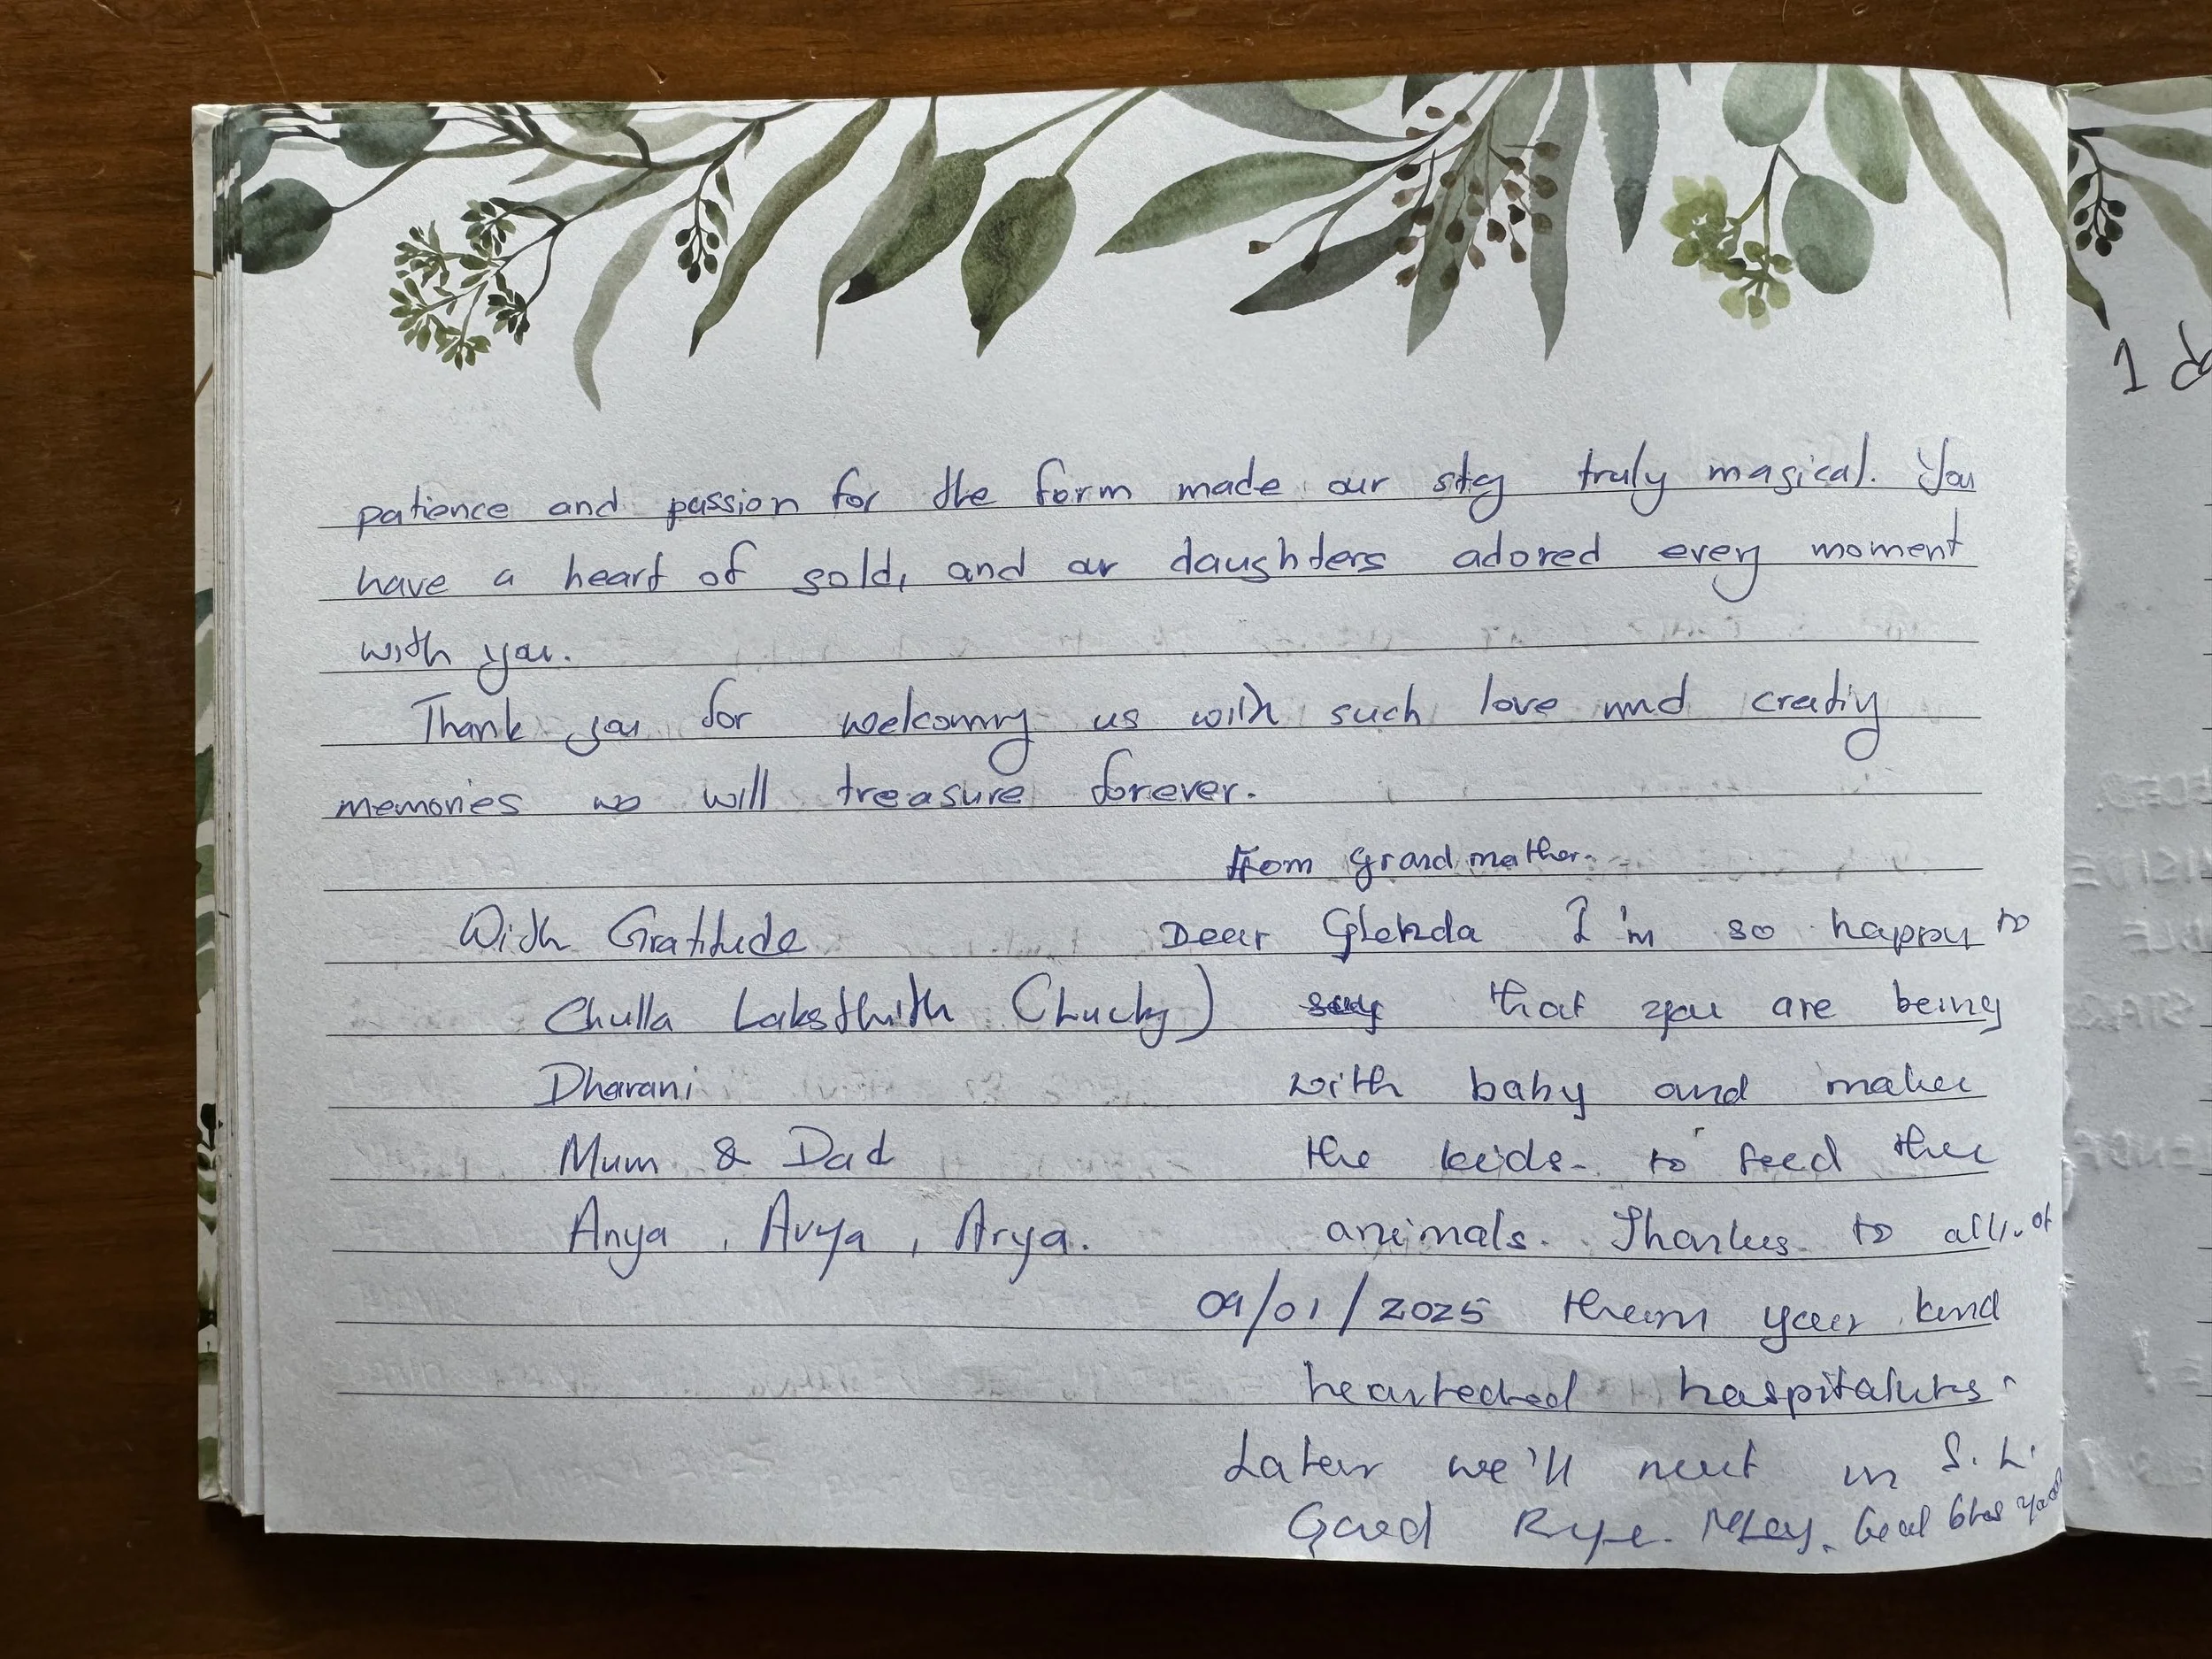 patience and passion for the farm made our stay truly magical. You
have a heart of gold, and our daughters adored every moment
with you.
Thank you for welcoming us with such love and creating
memories we will treasure forever.
With Gratitude
Chulla (Lucky)
Dharani
Mum & Dad
Anya, Avya, Arya.
From Grandmother.
Dear Glenda I'm so happy to
say that you are being
with baby and makes
the kids to feed the
animals. Thanks to all of
09/01/2025 them your kind
hearted
Later we'll meet in S.L.
Good Bye. God bless you
1